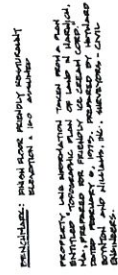 BENCHMARK: FINISH FLOOR FRIENDLY RESTAURANT
ELEVATION = 100 ASSUMED
PROPERTY & LAND INFORMATION TAKEN FROM A PLAN
ENTITLED "TOPOGRAPHIC PLAN OF LAND IN HARWICH,
MA., PREPARED FOR FRIENDLY ICE CREAM CORP."
DATED FEBRUARY 6, 1975. PREPARED BY
AND WILLIAMS, INC. SURVEYORS CIVIL
ENGINEERS.